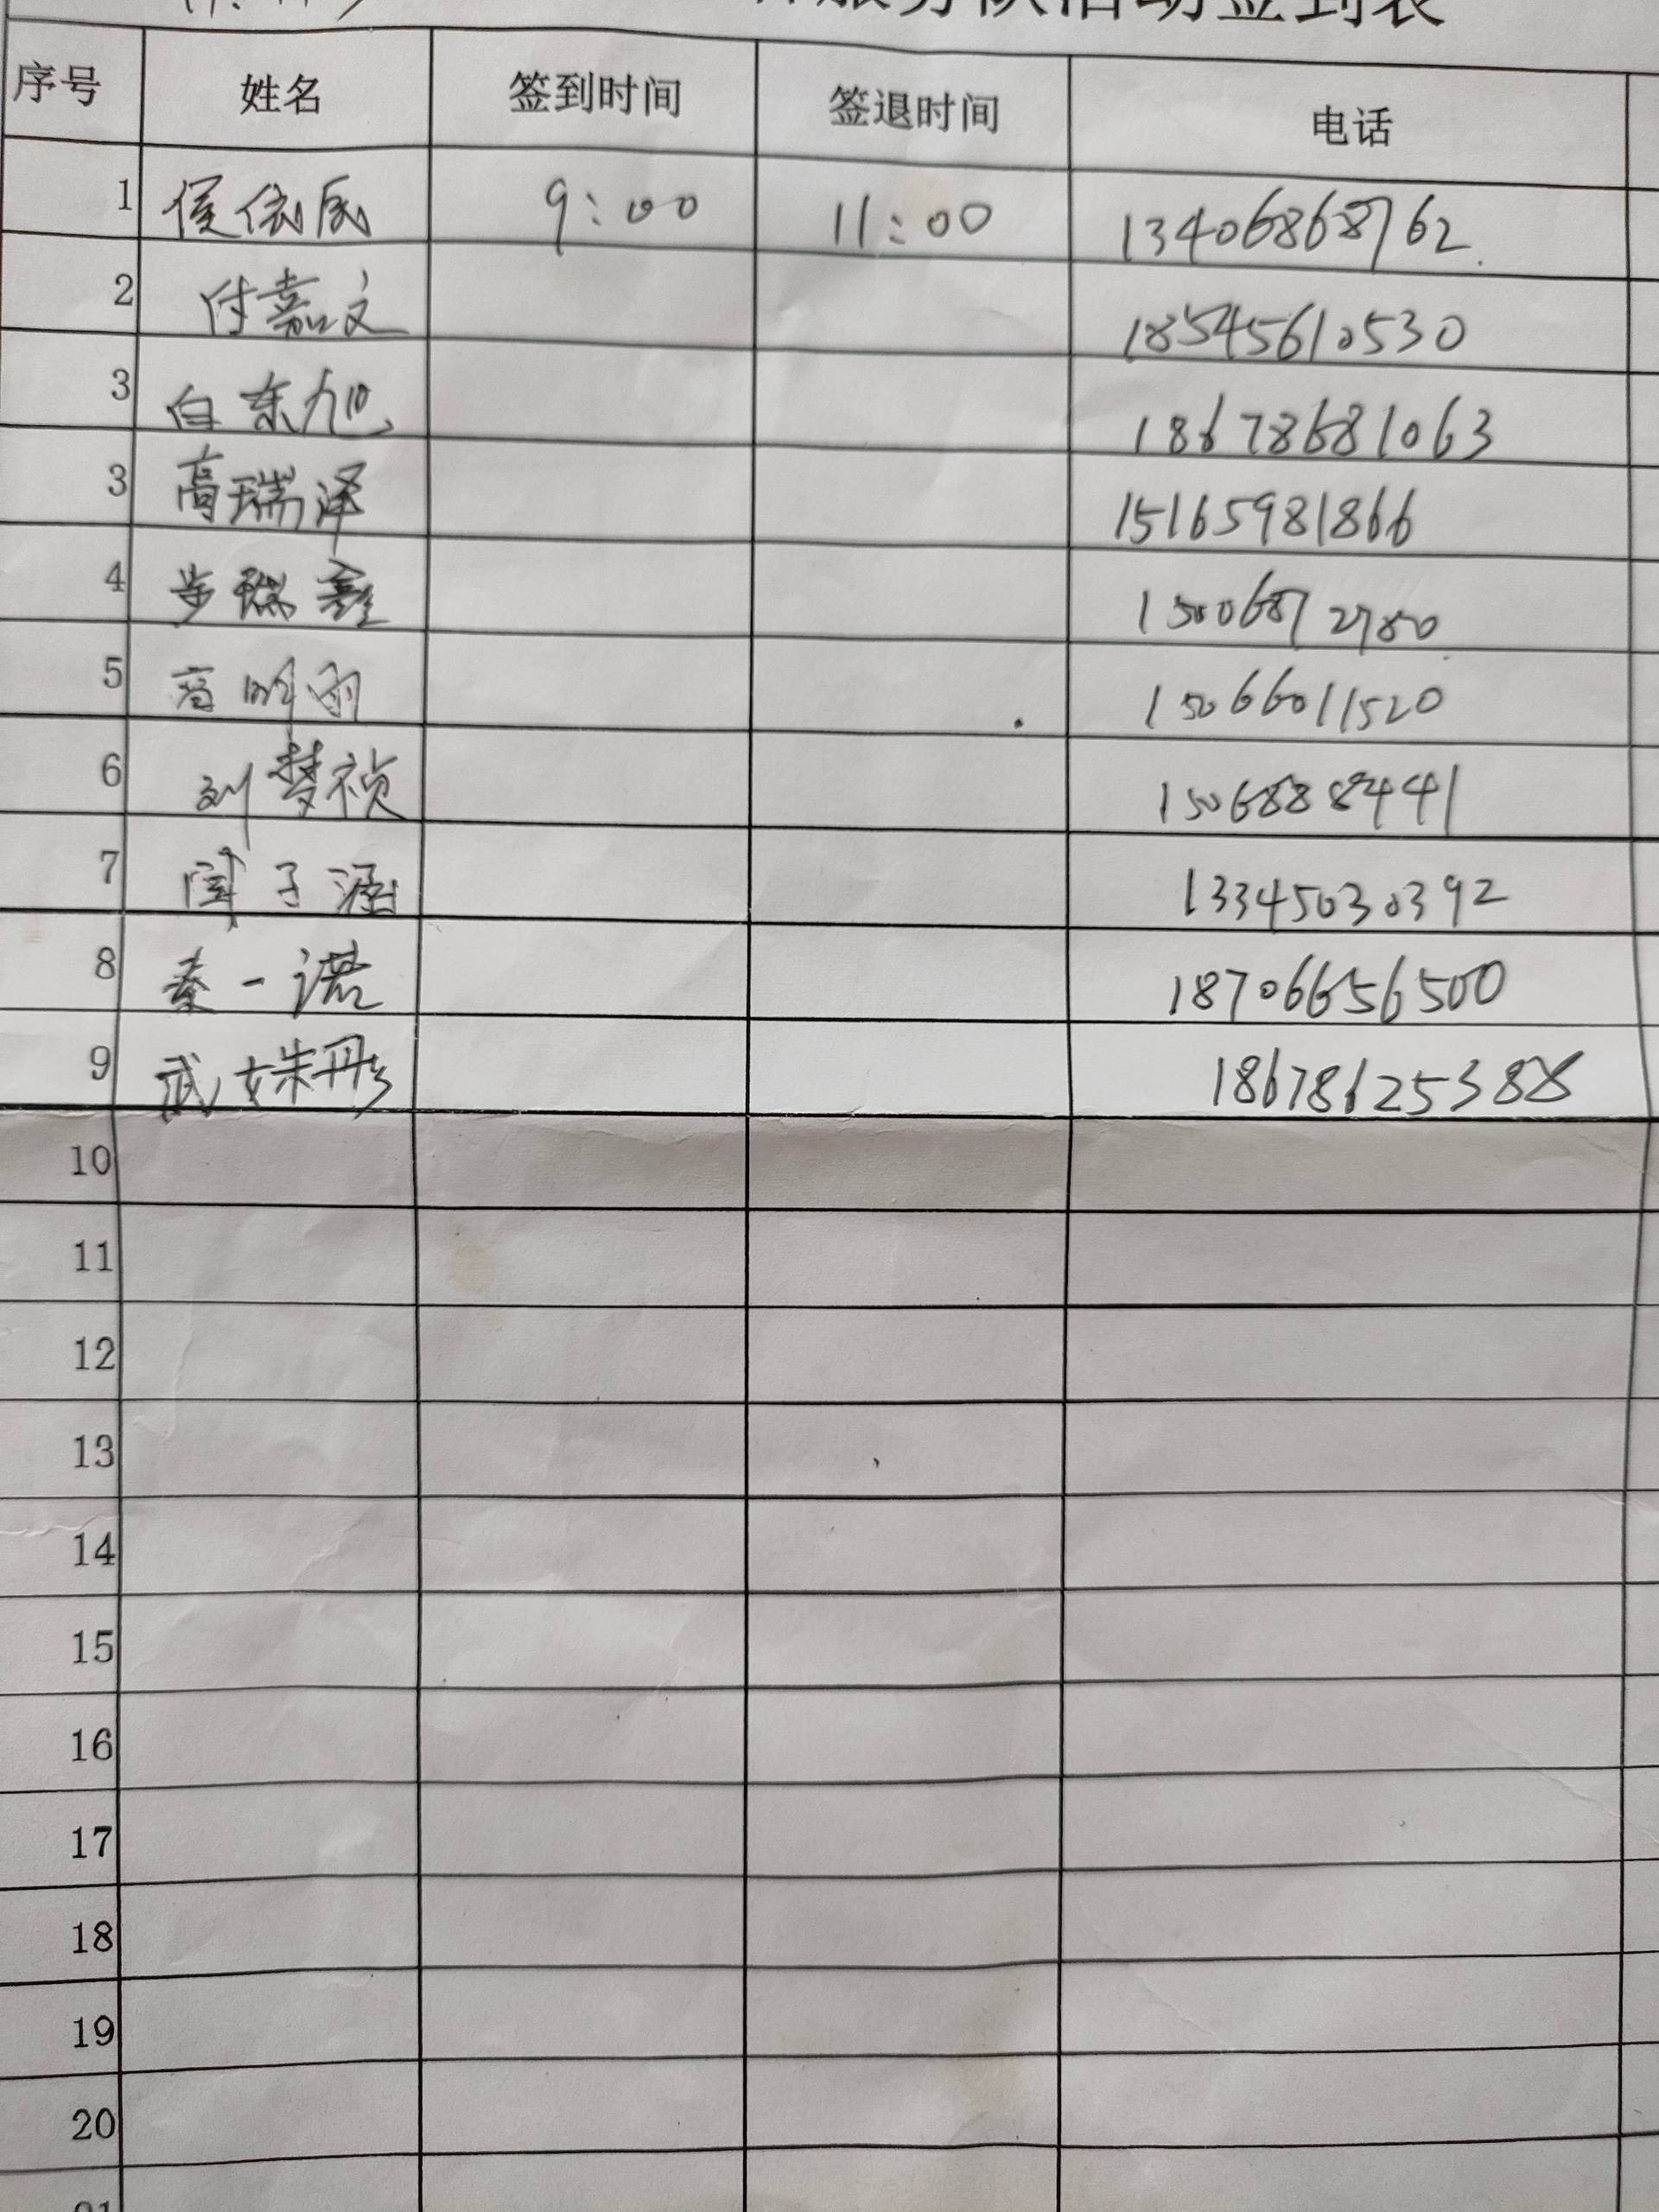 服务队活动签到表
序号 姓名 签到时间 签退时间 电话
1 侯依辰 9:00 11:00 13406868762
2 付嘉文 18545610530
3 白东旭 18678681063
3 高瑞泽 15165981866
4 步瑞鑫 15006872780
5 高 雨 15066011520
6 刘梦祯 15068888441
7 闫子涵 13345030392
8 秦一诺 18706656500
9 武姝彤 18678625388
10
11
12
13
14
15
16
17
18
19
20
21